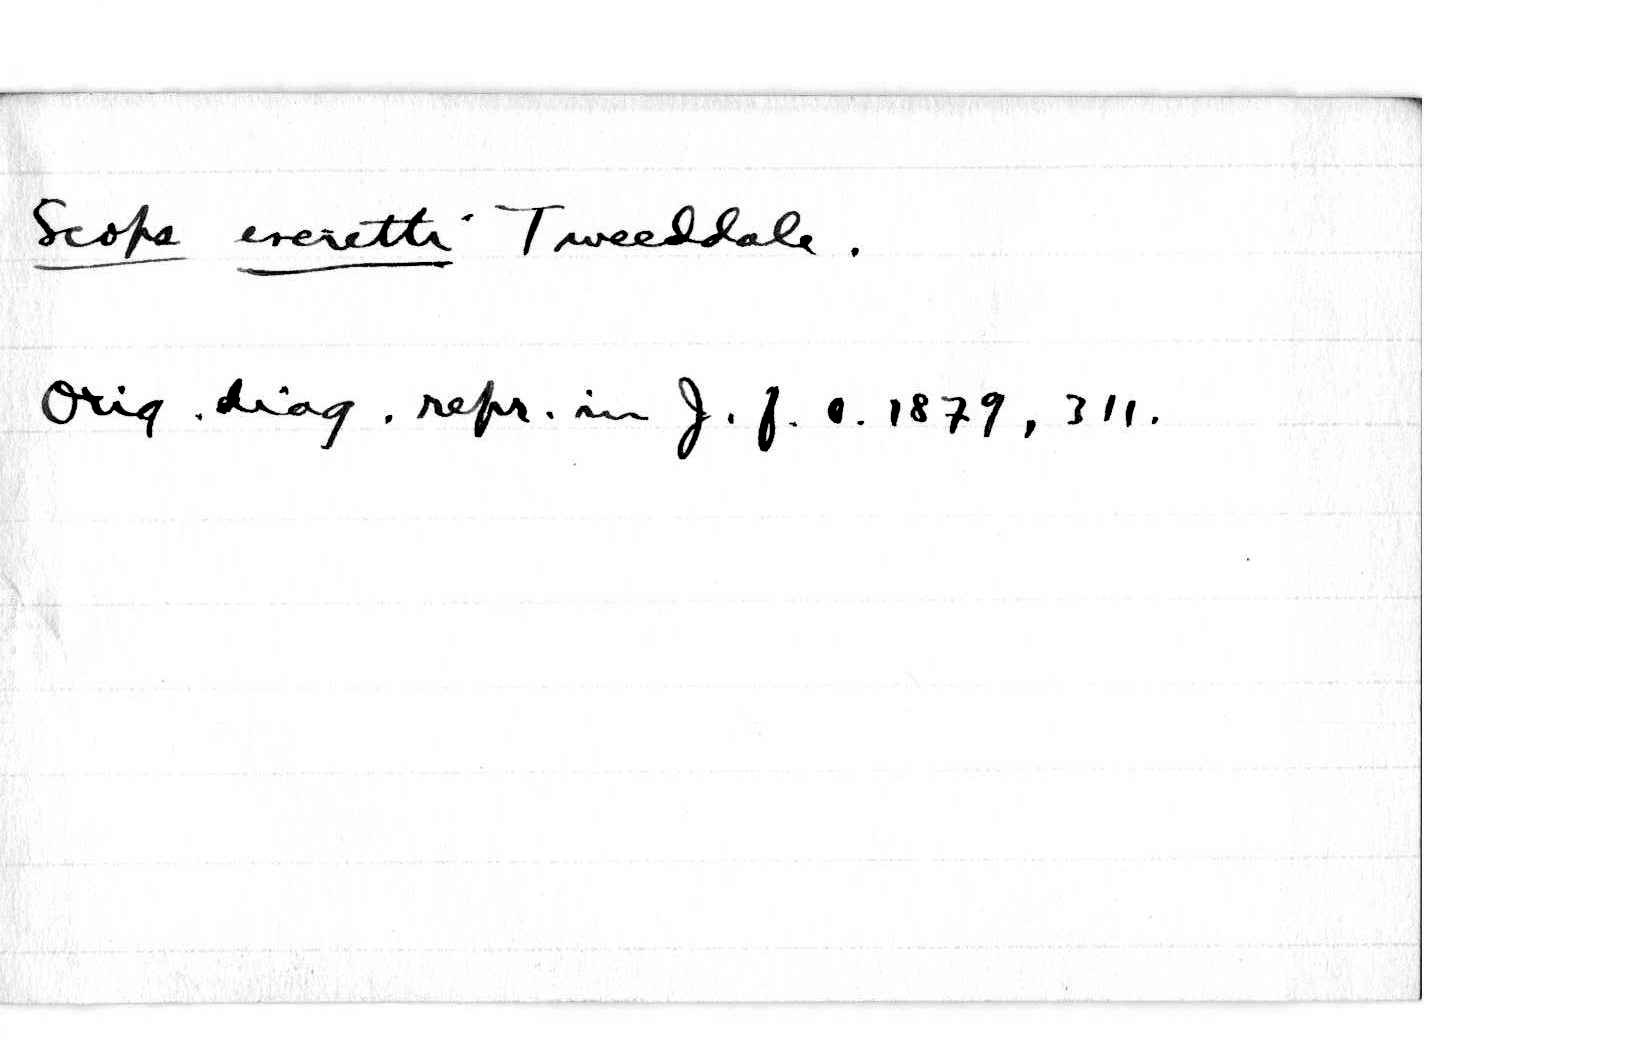 Scops everetti Tweeddale.
Orig. diag. repr. in J. f. O. 1879, 311.